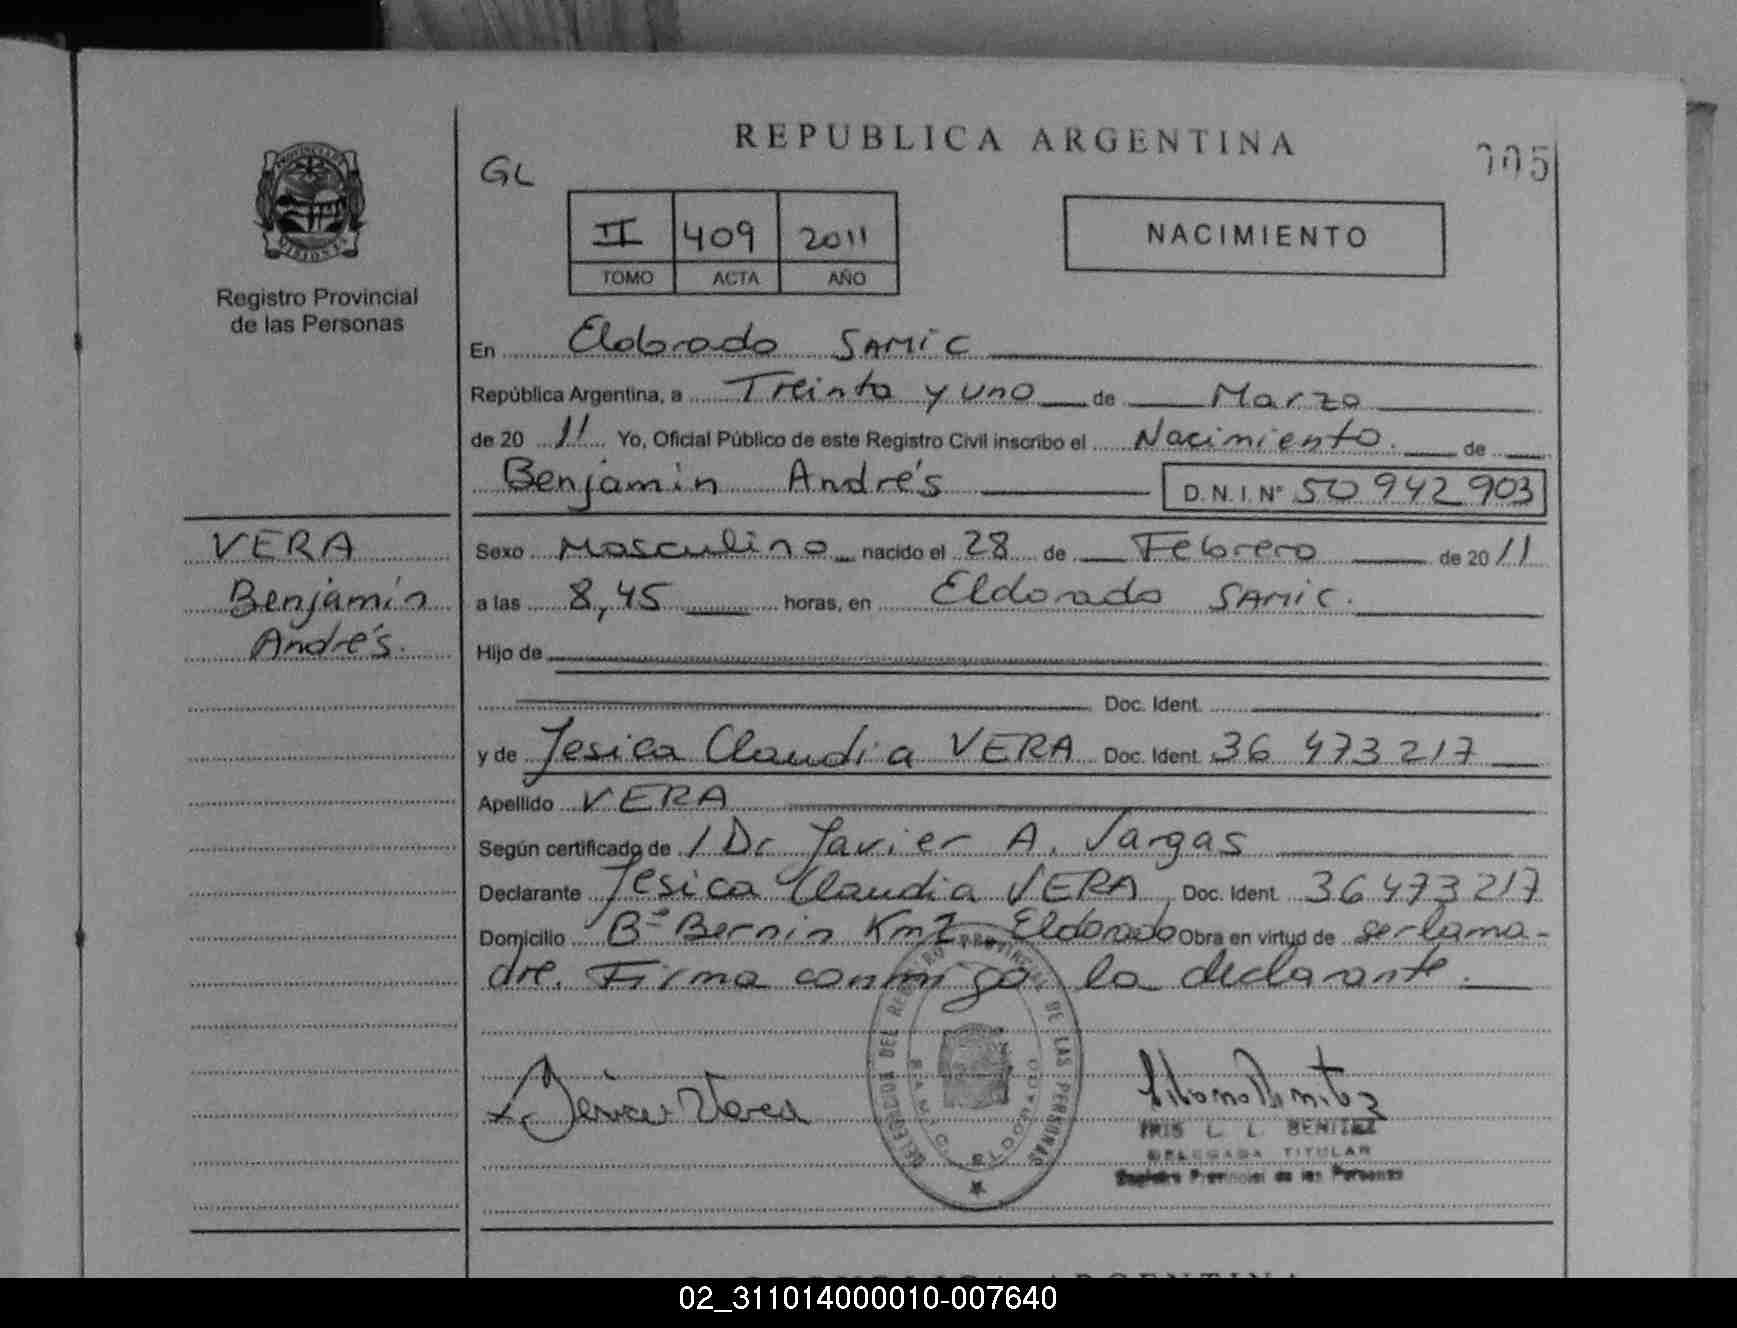 REPUBLICA ARGENTINA
GL
II 409 2011
TOMO ACTA AÑO
NACIMIENTO
Registro Provincial
de las Personas
En Eldorado SAMIC
República Argentina, a Treinta y uno de Marzo
de 20 11 Yo, Oficial Público de este Registro Civil inscribo el Nacimiento. de
Benjamín Andrés D.N.I. Nº 50 942 903
VERA
Benjamín
Andrés.
Sexo Masculino nacido el 28 de Febrero de 20 11
a las 8,45 horas, en Eldorado SAMIC.
Hijo de
Doc. Ident.
y de Jesica Claudia VERA Doc. Ident. 36 473 217
Apellido VERA
Según certificado de / Dr Javier A. Vargas
Declarante Jesica Claudia VERA Doc. Ident. 36 473 217
Domicilio Bº Bernin Km 2 Eldorado Obra en virtud de ser la ma-
dre. Firma conmigo la declarante.
DELEGACION DEL REGISTRO PROVINCIAL DE LAS PERSONAS
IRIS L. L. BENITEZ
DELEGADA TITULAR
Registro Provincial de las Personas
REPUBLICA ARGENTINA
02_311014000010-007640